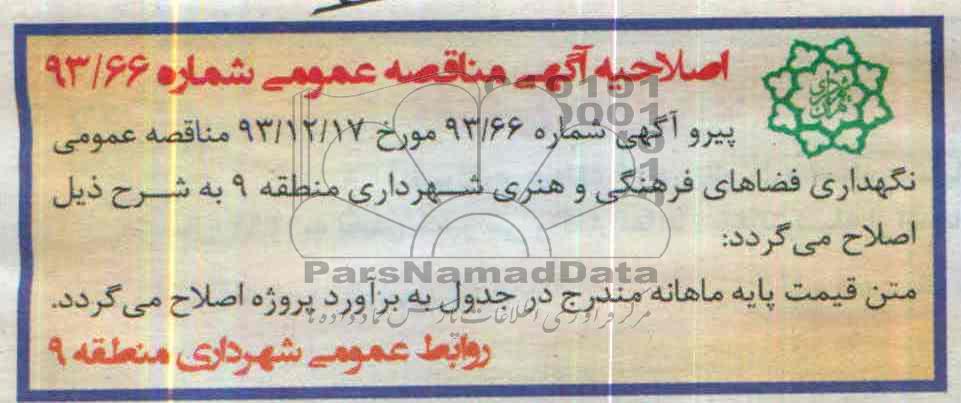 اصلاحیه آگهی مناقصه عمومی شماره ۹۳/۶۶
پیرو آگهی شماره ۹۳/۶۶ مورخ ۹۳/۱۲/۱۷ مناقصه عمومی
نگهداری فضاهای فرهنگی و هنری شهرداری منطقه ۹ به شرح ذیل
اصلاح می‌گردد:
ParsNamadData
متن قیمت پایه ماهانه مندرج در جدول به برآورد پروژه اصلاح می‌گردد.
روابط عمومی شهرداری منطقه ۹